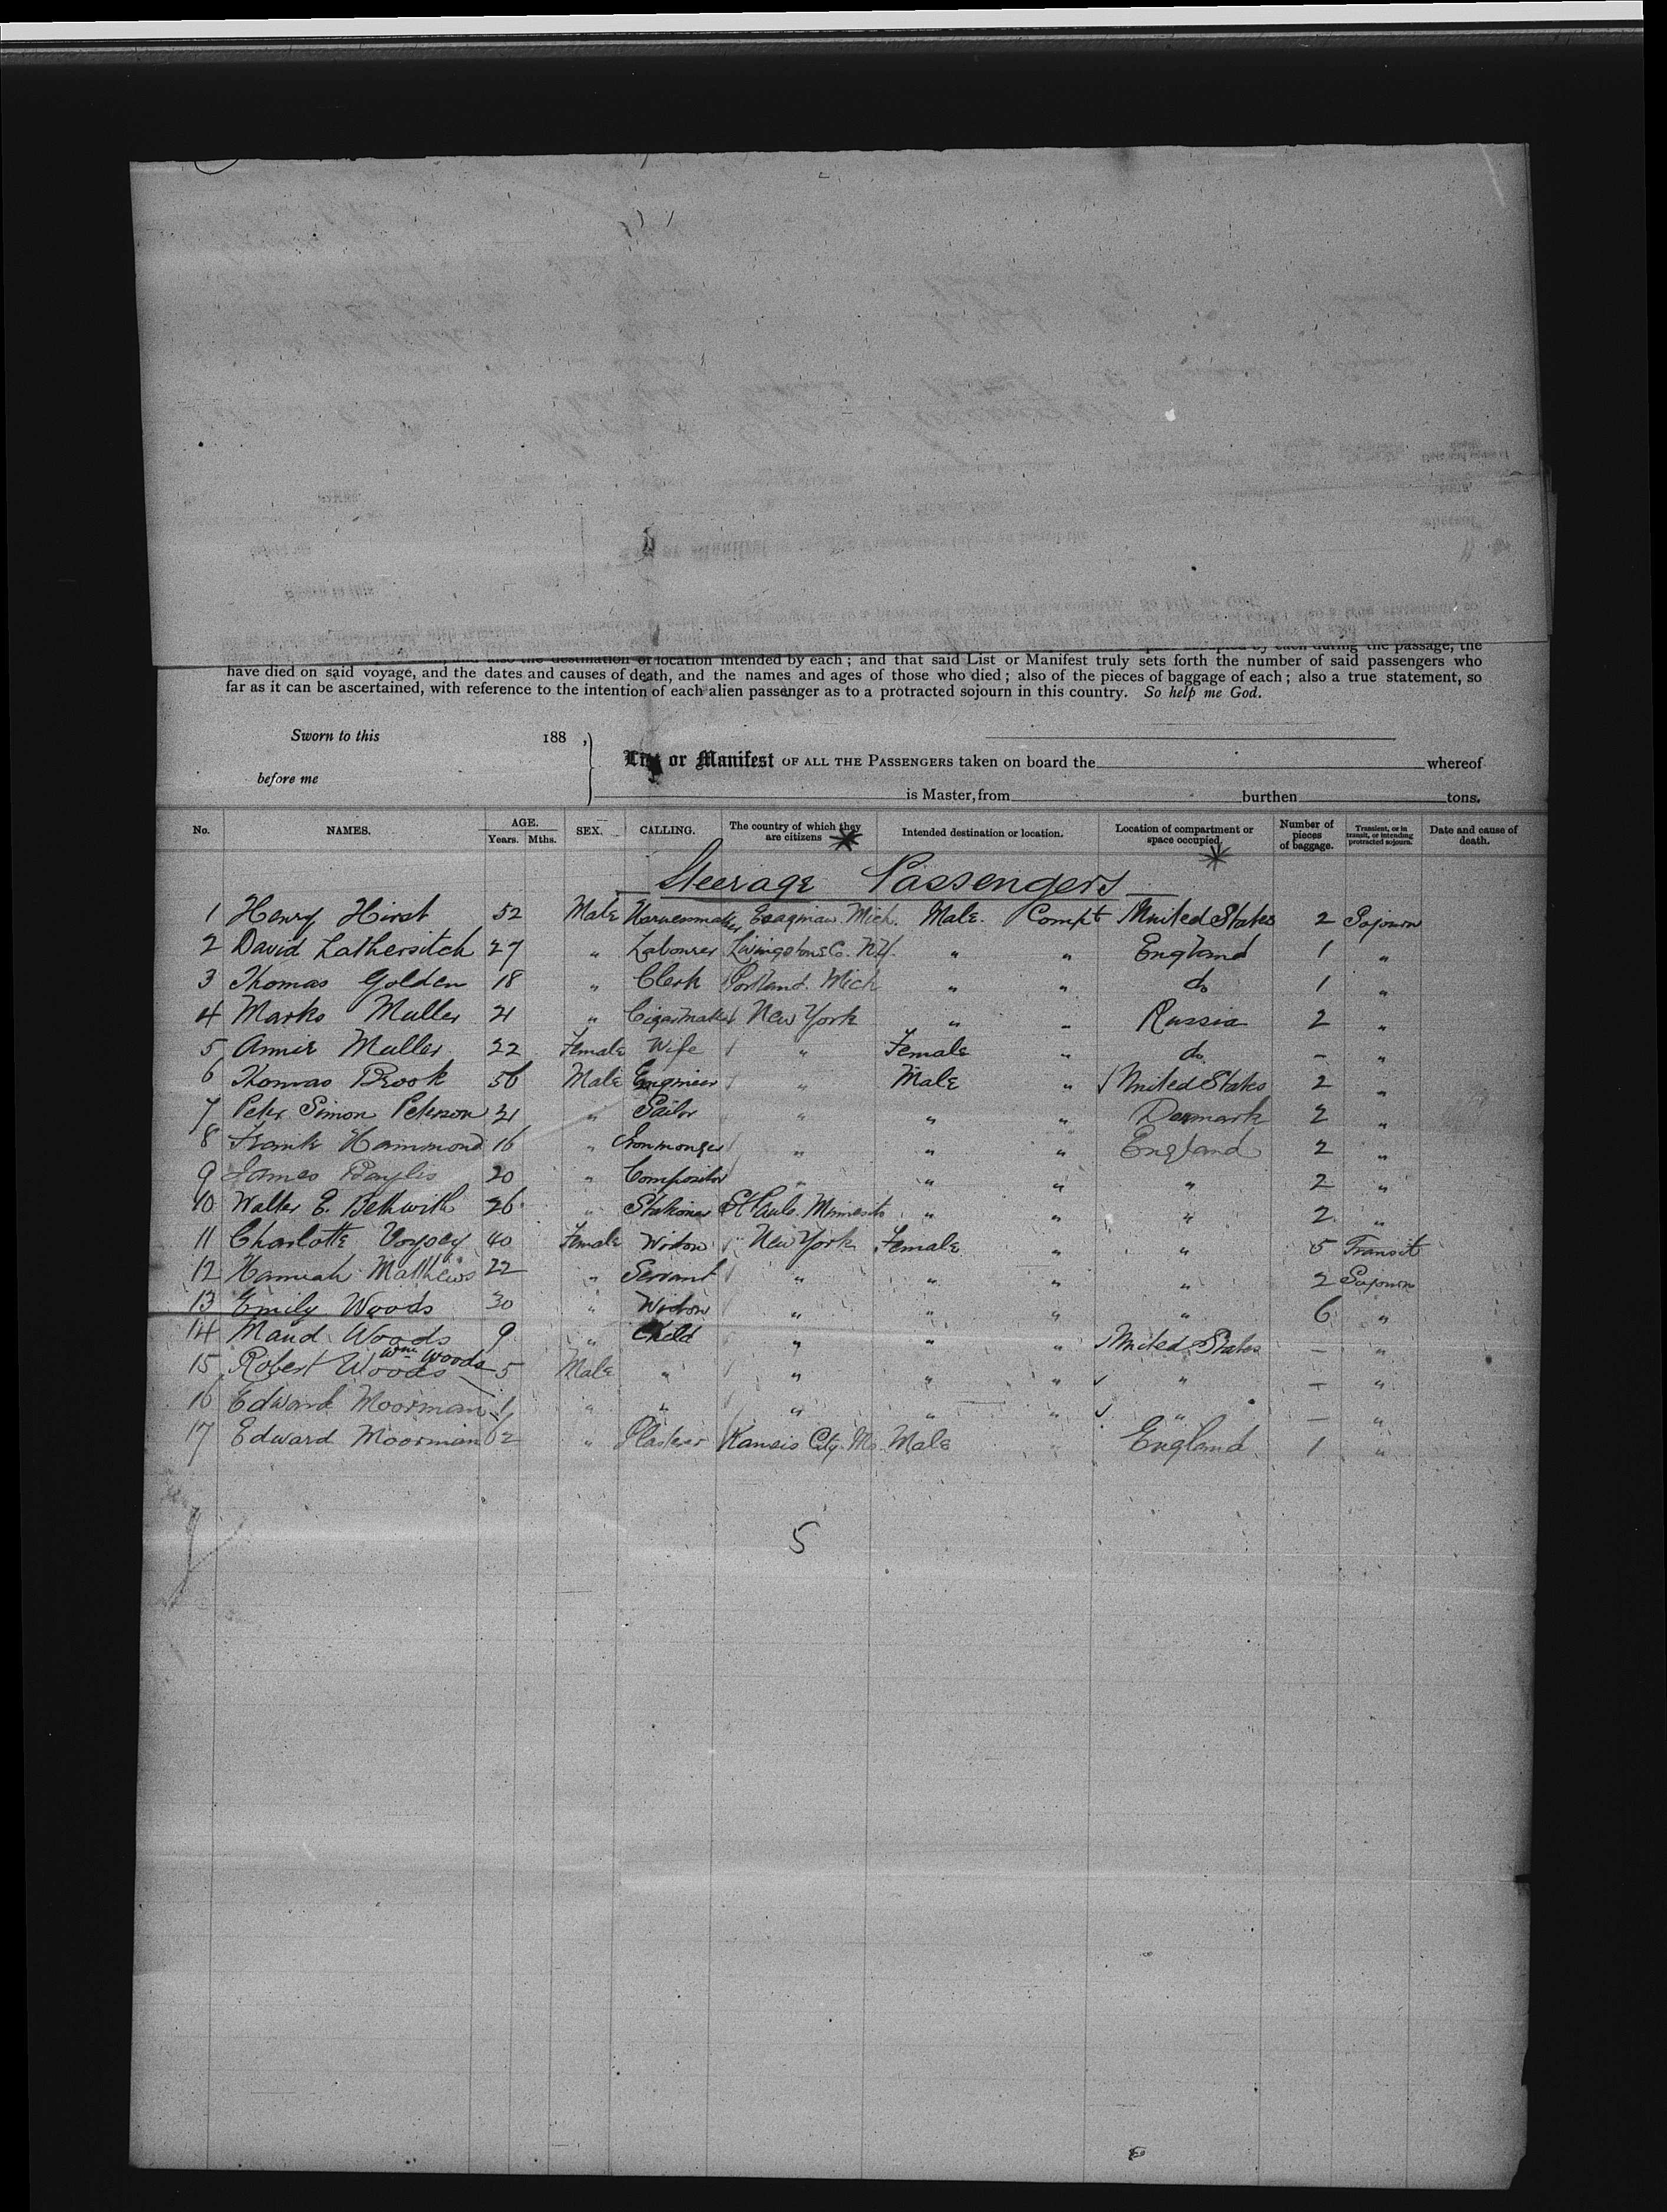 have died on said voyage, and the dates and causes of death, and the names and ages of those who died; also of the pieces of baggage of each; also a true statement, so
far as it can be ascertained, with reference to the intention of each alien passenger as to a protracted sojourn in this country. So help me God.
Sworn to this 188 ,
before me
List or Manifest OF ALL THE PASSENGERS taken on board the whereof
is Master, from burthen tons.
No. NAMES. AGE. Years. Mths. SEX. CALLING. The country of which they are citizens Intended destination or location. Location of compartment or space occupied. Number of pieces of baggage. Transient, or in transit, or intending protracted sojourn. Date and cause of death.
Steerage Passengers
1 Henry Hirst 52 Male Harnessmaker Mich. Male. Compt United States 2 Sojourn
2 David 27 " Labourer Livingstone Co. N.Y. " " England 1 "
3 Thomas Golden 18 " Clerk Portland. Mich " " do 1 "
4 Marks Muller 21 " Cigarmaker New York " " Russia 2 "
5 Muller 22 Female Wife " Female " do. – "
6 Thomas Brook 56 Male Engineer " Male " United States 2 "
7 Peter Simon Peterson 21 " Sailor " " " Denmark 2 "
8 Frank Hammond 16 " Ironmonger " " " England 2 "
9 James Baylis 20 " Compositor " " " " 2 "
10 Walter E. Beckwith 26 " Stationer St Pauls. " " " 2 "
11 Charlotte 40 Female Widow New York Female " " 5 Transit
12 Hannah Matthews 22 " Servant " " " " 2 Sojourn
13 Emily Woods 30 " Widow " " " " 6 "
14 Maud Woods 9 " Child " " " United States – "
Wm Woods
15 Robert Woods 5 Male " " " " " – "
16 Edward Moorman 1 " " " " " " – "
17 Edward Moorman 62 " Plasterer Kansis City. Mo. Male " England 1 "
5